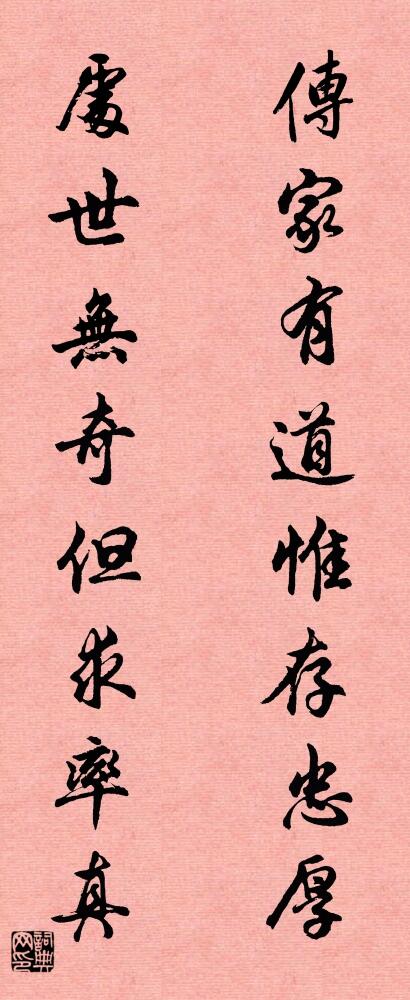 傳家有道惟存忠厚
處世無奇但求率真
詞典網印